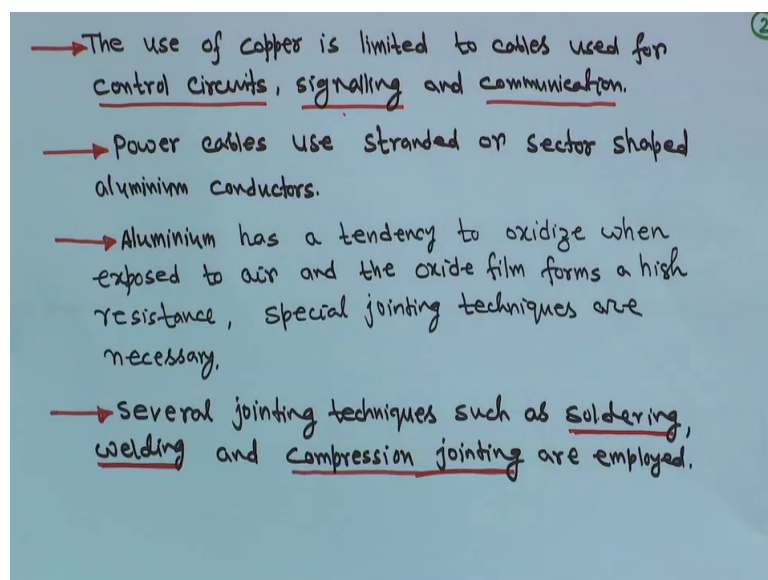 2
→ The use of copper is limited to cables used for
control circuits, signalling and communication.
→ Power cables use stranded or sector shaped
aluminium conductors.
→ Aluminium has a tendency to oxidize when
exposed to air and the oxide film forms a high
resistance, special jointing techniques are
necessary.
→ Several jointing techniques such as soldering,
welding and compression jointing are employed.